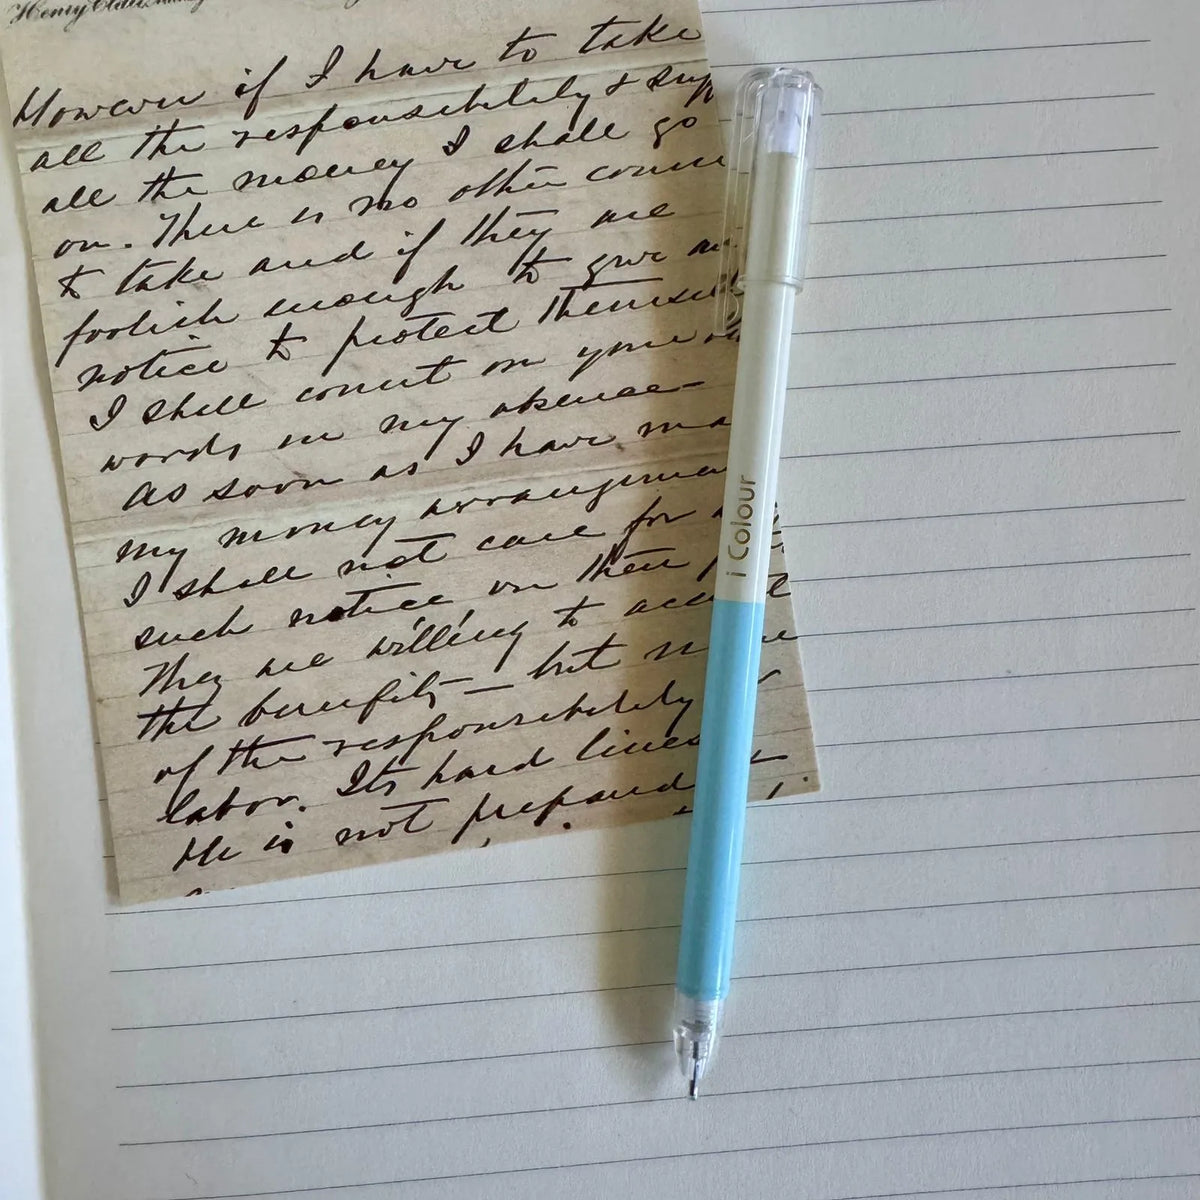 However if I have to take
all the responsibility & supp
all the money I shall go
on. There is no other course
to take and if they are
foolish enough to give me
notice to protect themselves
I shall count on your
words in my absence—
As soon as I have ma
my money arrangemen
I shall not care for
such notice on their
They are willing to accept
the benefits — but none
of the responsibility or
labor. Its hard lines
He is not prepared
i Colour